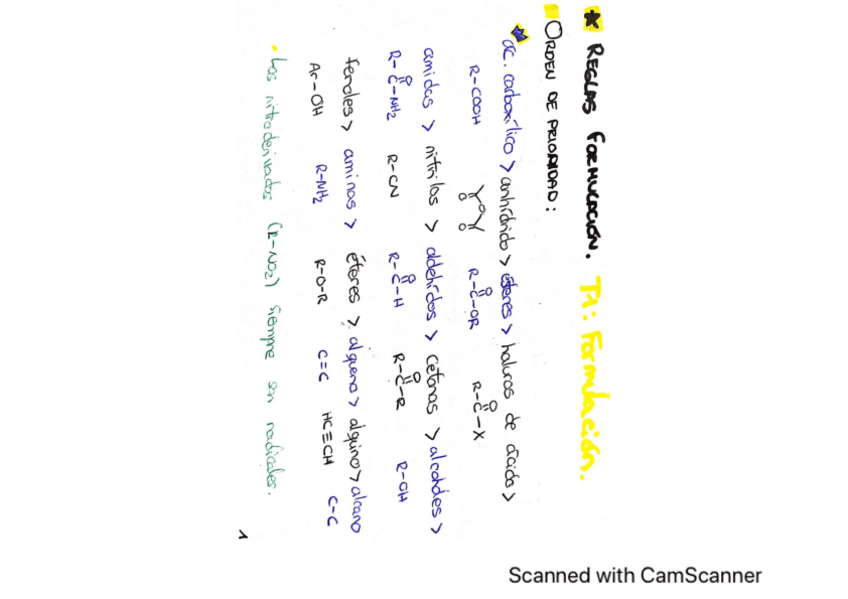 ★ REGLAS FORMULACIÓN. T1: Formulación.
ORDEN DE PRIORIDAD:
★ ac. carboxílico > anhídrido > ésteres > haluros de ácido >
R-COOH O O O R-C-OR O R-C-X O
amidas > nitrilos > aldehídos > cetonas > alcoholes >
R-C-NH₂ O R-CN R-C-H O R-C-R O R-OH
fenoles > aminas > éteres > alqueno > alquino > alcano
Ar-OH R-NH₂ R-O-R C=C HC≡CH C-C
• Los nitroderivados (R-NO₂) siempre son radicales.
1
Scanned with CamScanner